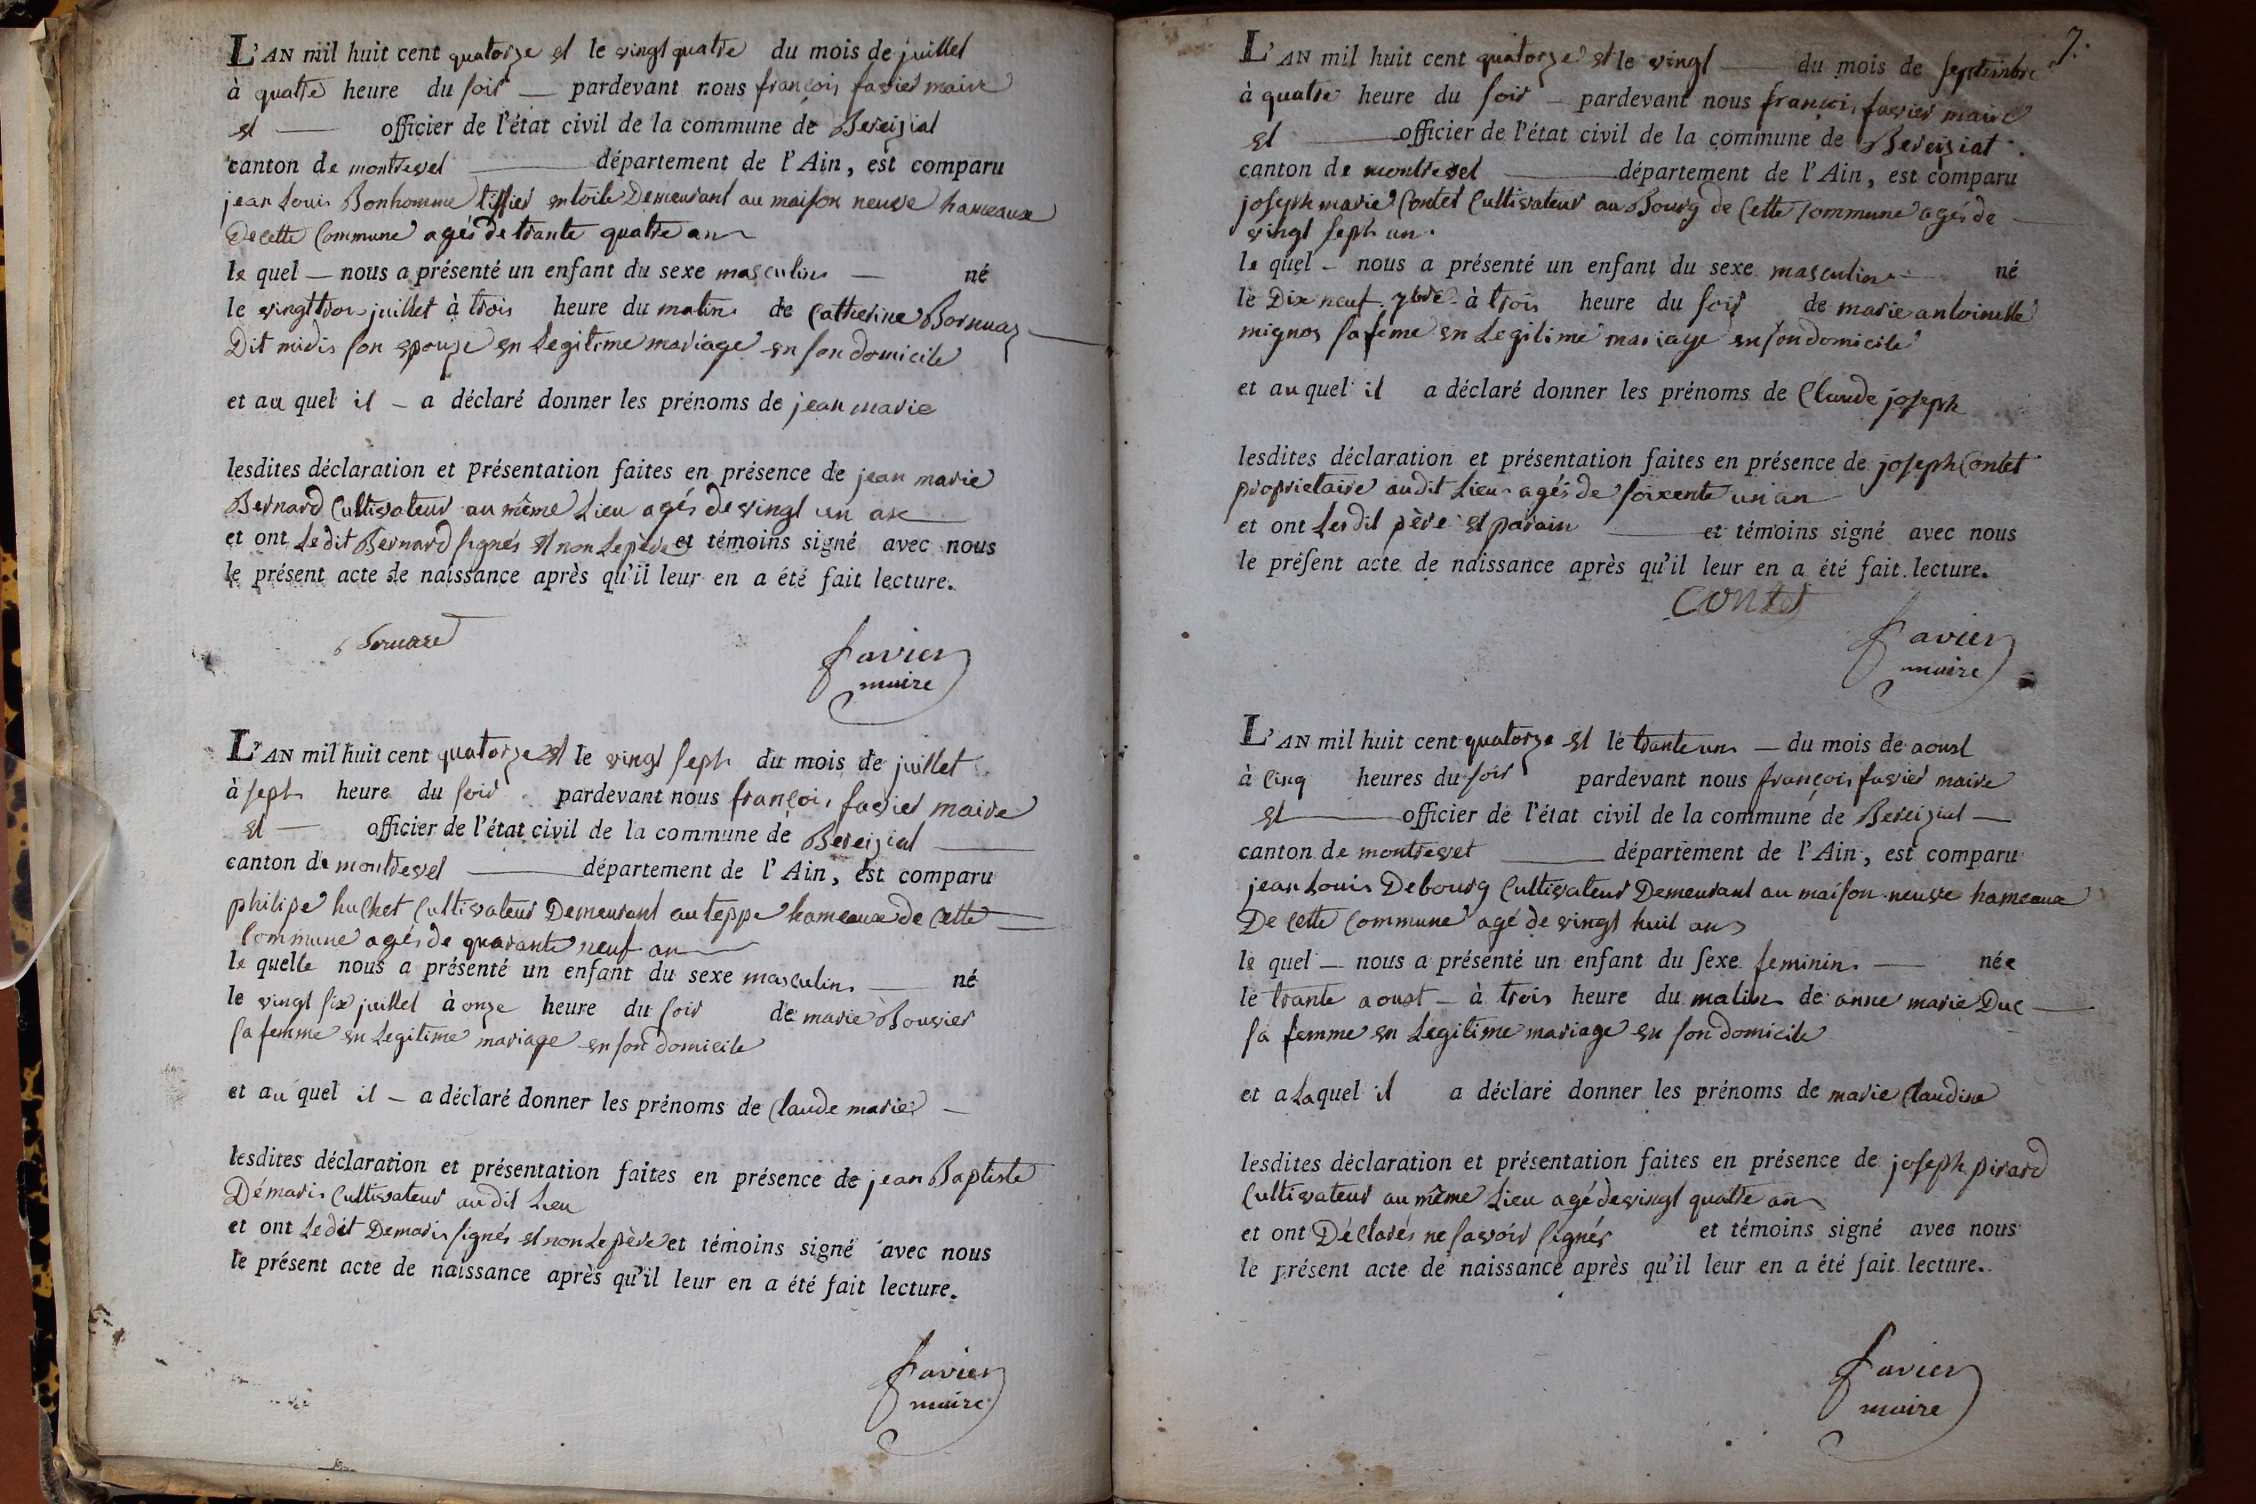 L'AN mil huit cent quatorze et le vingt quatre du mois de juillet
à quatre heure du soir — pardevant nous françois favier maire
et — officier de l'état civil de la commune de Bereiziat
canton de montrevel — département de l'Ain, est comparu
jean Louis Bonhomme tissier en toile Demeurant au maison neuve hameaux
De cette Commune agés de trante quatre an
le quel — nous a présenté un enfant du sexe masculin — né
le vingt trois juillet à trois heure du matin de Catherine Bornuaz
Dit midis son epouze en Legitime mariage en son domicile
et au quel il — a déclaré donner les prénoms de jean marie
lesdites déclaration et présentation faites en présence de jean marie
Bernard Cultivateur au même Lieu agés de vingt un an
et ont Le dit Bernard signés et non Le père et témoins signé avec nous
le présent acte de naissance après qu'il leur en a été fait lecture.
favier
maire
L'AN mil huit cent quatorze et le vingt sept du mois de juillet
à sept heure du soir pardevant nous françois favier maire
et — officier de l'état civil de la commune de Bereiziat —
canton de montrevel — département de l'Ain, est comparu
philipe huchet Cultivateur Demeurant au teppe hameaux de Cette —
Commune agés de quarante neuf an
le quelle nous a présenté un enfant du sexe masculin — né
le vingt six juillet à onze heure du soir de marie Bouvier
sa femme en Legitime mariage en son domicile
et au quel il — a déclaré donner les prénoms de Claude marie —
lesdites déclaration et présentation faites en présence de jean Baptiste
Démaris Cultivateur au dit Lieu
et ont Le dit Demaris signés et non Le père et témoins signé avec nous
le présent acte de naissance après qu'il leur en a été fait lecture.
favier
maire
7.
L'AN mil huit cent quatorze et le vingt — du mois de septembre
à quatre heure du soir — pardevant nous françois favier maire
et — officier de l'état civil de la commune de Bereiziat.
canton de montrevel — département de l'Ain, est comparu
joseph marie Contet Cultivateur au Bourg de Cette Commune agés de —
vingt sept an.
le quel — nous a présenté un enfant du sexe masculin — né
le Dix neuf 7bre à trois heure du soir de marie antoinette
mignos sa feme en Legitime mariage en son domicile
et au quel il a déclaré donner les prénoms de Claude joseph
lesdites déclaration et présentation faites en présence de joseph Contet
proprietaire au dit Lieu agés de soixente un an
et ont Les dit père et parain — et témoins signé avec nous
le présent acte de naissance après qu'il leur en a été fait lecture.
Contet
favier
maire
L'AN mil huit cent quatorze et le trante un — du mois de aoust
à Cinq heures du soir pardevant nous françois favier maire
et — officier de l'état civil de la commune de Bereiziat —
canton de montrevet — département de l'Ain, est comparu
jean Louis Debourg Cultivateur Demeurant au maison neuve hameaux
De Cette Commune agé de vingt huit ans
le quel — nous a présenté un enfant du sexe feminin — née
le trante aoust — à trois heure du matin de anne marie Duc —
sa femme en Legitime mariage en son domicile
et a La quel il a déclaré donner les prénoms de marie Claudine
lesdites déclaration et présentation faites en présence de joseph pirard
Cultivateur au même Lieu agé de vingt quatre an
et ont Déclarés ne savoir signés et témoins signé avec nous
le présent acte de naissance après qu'il leur en a été fait lecture.
favier
maire